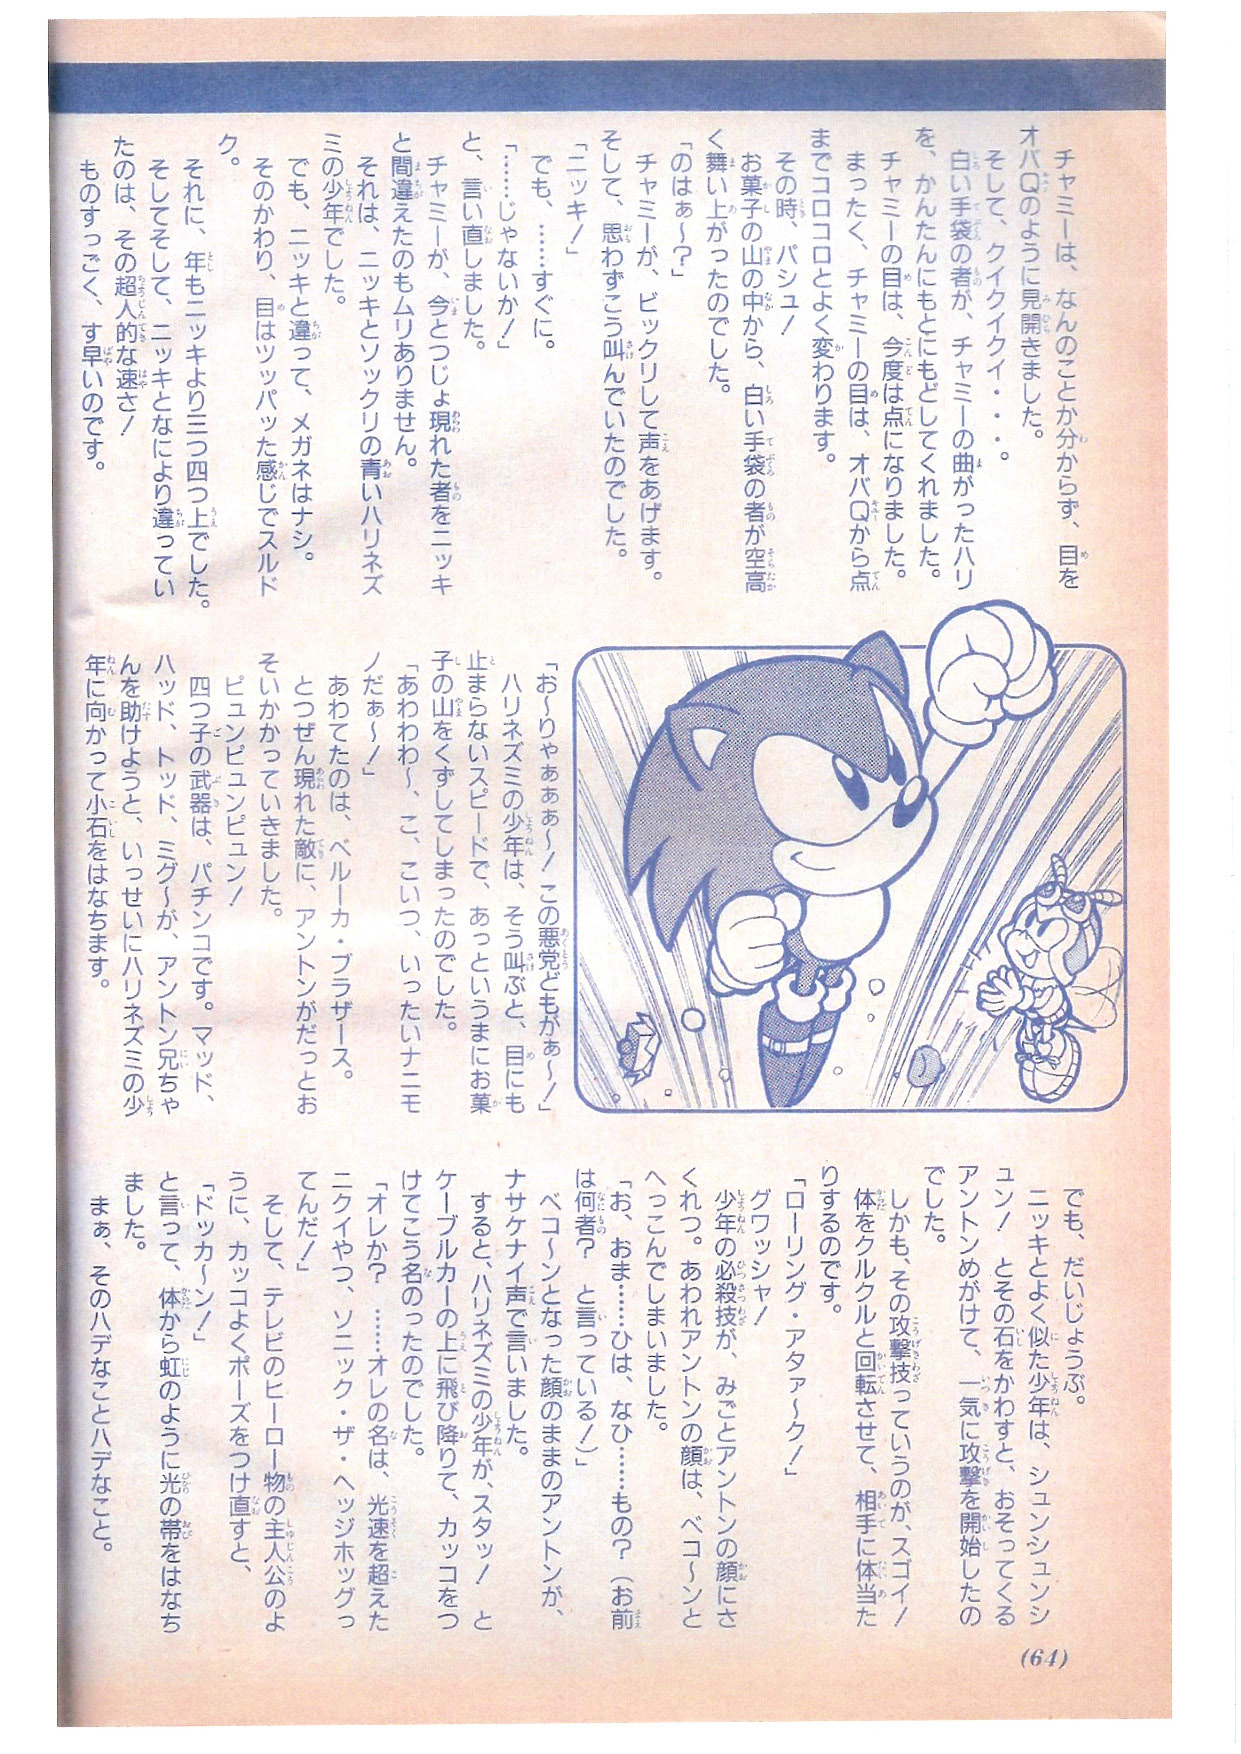 チャミーは、なんのことか分からず、目を
オバQのように見開きました。
そして、クイクイクイ・・・。
白い手袋の者が、チャミーの曲がったハリ
を、かんたんにもとにもどしてくれました。
チャミーの目は、今度は点になりました。
まったく、チャミーの目は、オバQから点
までコロコロとよく変わります。
その時、パシュ!
お菓子の山の中から、白い手袋の者が空高
く舞い上がったのでした。
「のはぁ〜?」
チャミーが、ビックリして声をあげます。
そして、思わずこう叫んでいたのでした。
「ニッキ!」
でも、……すぐに。
「……じゃないか!」
と、言い直しました。
チャミーが、今とつじょ現れた者をニッキ
と間違えたのもムリありません。
それは、ニッキとソックリの青いハリネズ
ミの少年でした。
でも、ニッキと違って、メガネはナシ。
そのかわり、目はツッパッた感じでスルド
ク。
それに、年もニッキより三つ四つ上でした。
そしてそして、ニッキとなにより違ってい
たのは、その超人的な速さ!
ものすっごく、す早いのです。
「お〜りゃぁぁぁ〜! この悪党どもがぁ〜!」
ハリネズミの少年は、そう叫ぶと、目にも
止まらないスピードで、あっというまにお菓
子の山をくずしてしまったのでした。
「あわわわ〜、こ、こいつ、いったいナニモ
ノだぁ〜!」
あわてたのは、ベルーカ・ブラザース。
とつぜん現れた敵に、アントンがだっとお
そいかかっていきました。
ピュンピュンピュン!
四つ子の武器は、パチンコです。マッド、
ハッド、トッド、ミグ〜が、アントン兄ちゃ
んを助けようと、いっせいにハリネズミの少
年に向かって小石をはなちます。
でも、だいじょうぶ。
ニッキとよく似た少年は、シュンシュンシ
ュン! とその石をかわすと、おそってくる
アントンめがけて、一気に攻撃を開始したの
でした。
しかも、その攻撃技っていうのが、スゴイ!
体をクルクルと回転させて、相手に体当た
りするのです。
「ローリング・アタァ〜ク!」
グワッシャ!
少年の必殺技が、みごとアントンの顔にさ
くれつ。あわれアントンの顔は、ベコ〜ンと
へっこんでしまいました。
「お、おま……ひは、なひ……もの? (お前
は何者? と言っている!)」
ベコ〜ンとなった顔のままのアントンが、
ナサケナイ声で言いました。
すると、ハリネズミの少年が、スタッ! と
ケーブルカーの上に飛び降りて、カッコをつ
けてこう名のったのでした。
「オレか? ……オレの名は、光速を超えた
ニクイやつ、ソニック・ザ・ヘッジホッグっ
てんだ!」
そして、テレビのヒーロー物の主人公のよ
うに、カッコよくポーズをつけ直すと、
「ドッカ〜ン!」
と言って、体から虹のように光の帯をはなち
ました。
まぁ、そのハデなことハデなこと。
(64)